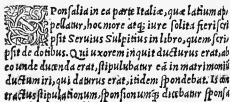 SPonsalia in ea parte Italiæ, quæ latium ap
pellatur, hoc more atq; iure solita fieri scri
psit Seruius Sulpitius in libro, quem scri
psit de dotibus. Qui uxorem inquit ducturus erat, ab
eo unde ducenda erat, stipulabatur eā in matrimoniū
ductum iri, qui daturus erat, itidem spondebat. Is
tractus stipulationum, sponsionumq; dicebatur sponsa